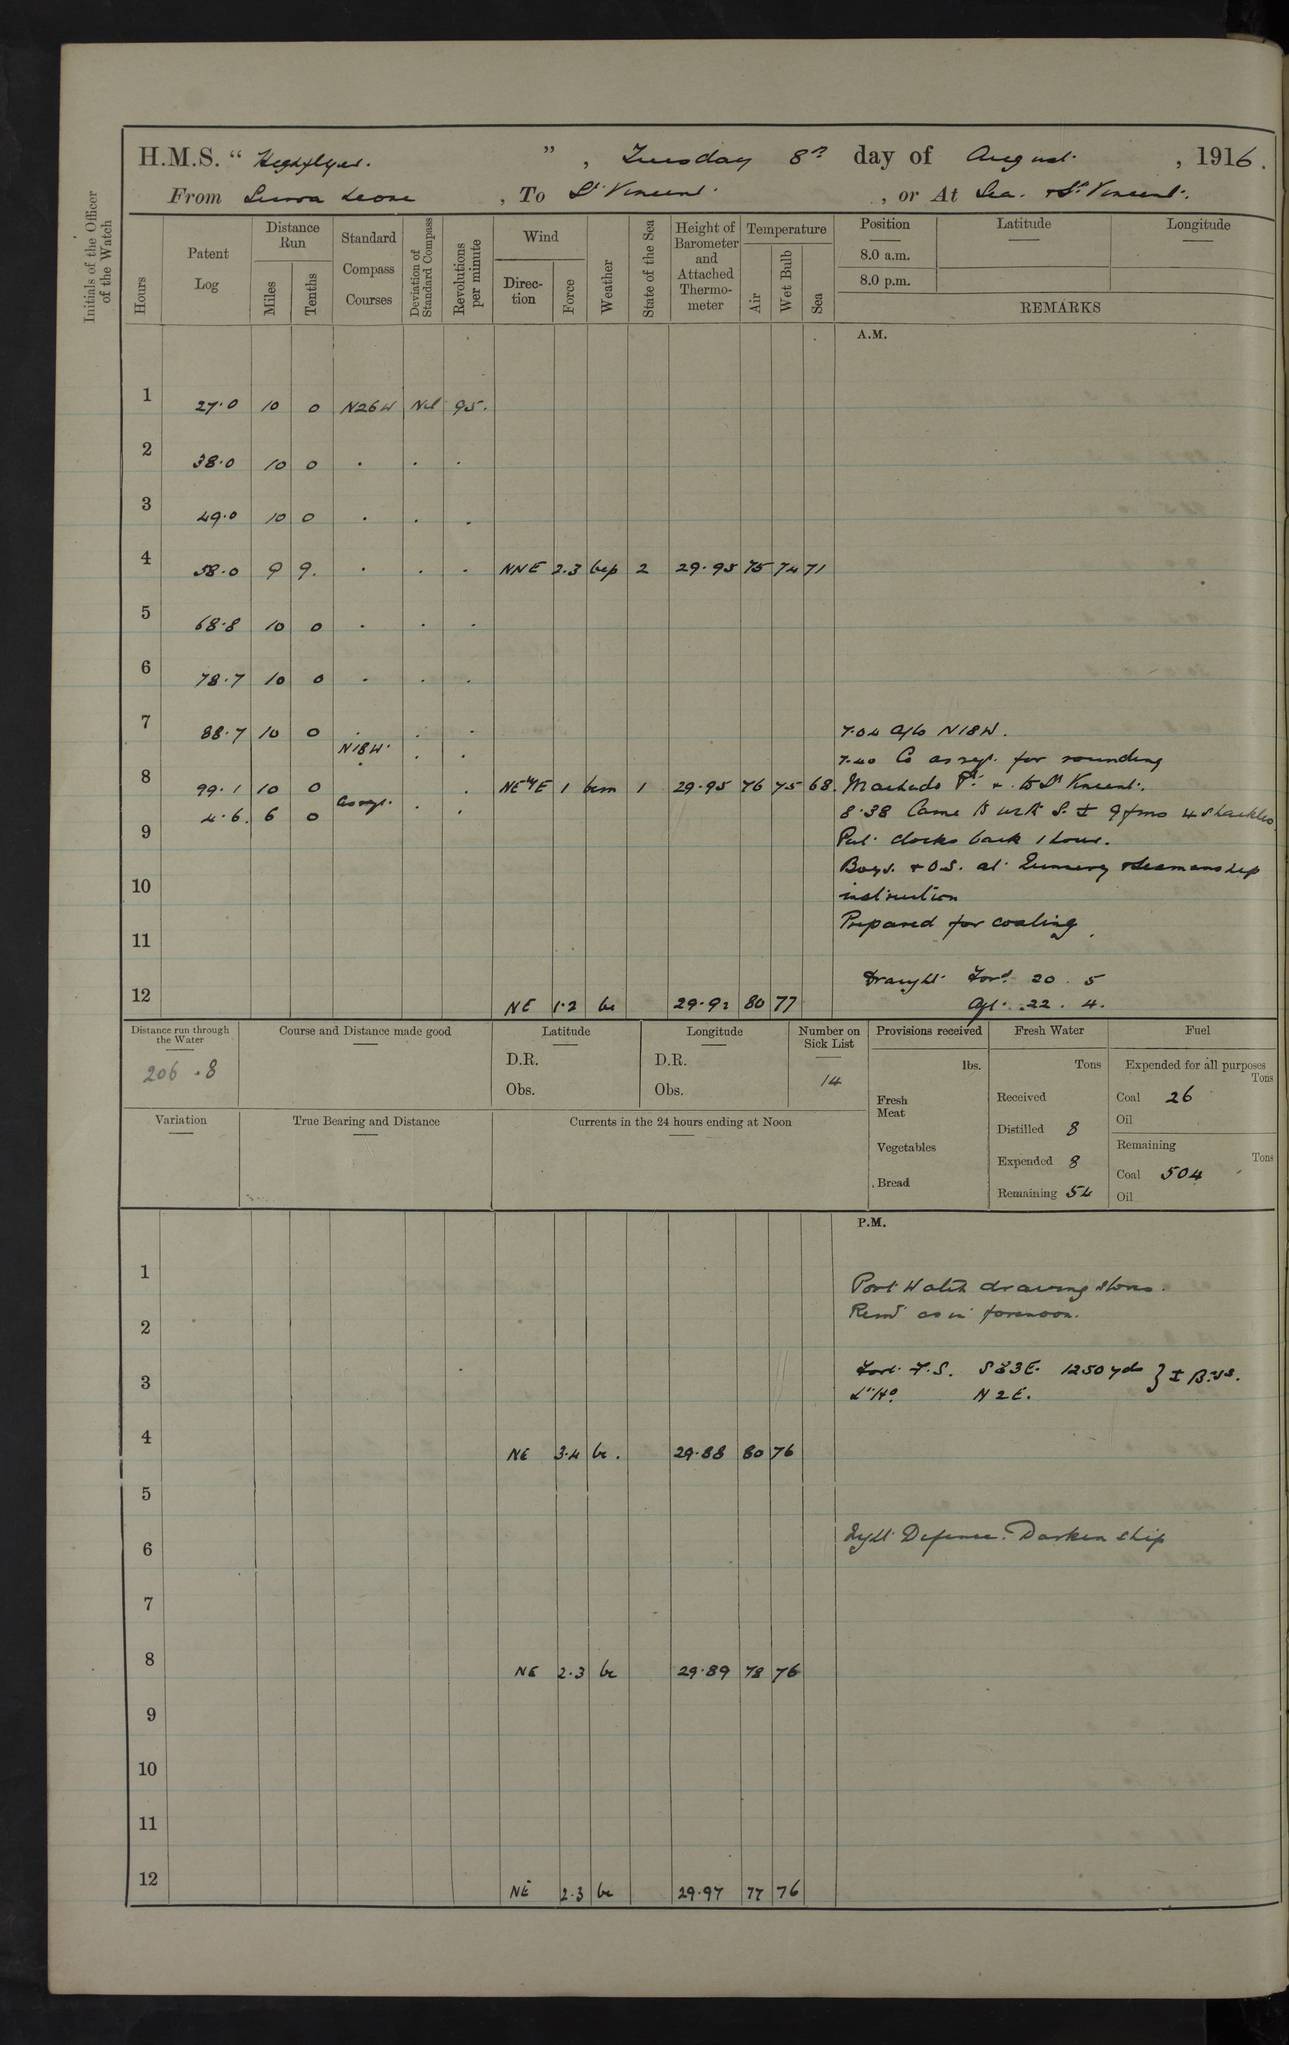 H.M.S. "Highflyer.", Tuesday 8th day of August, 1916.
From Sierra Leone, To St Vincent., or At Sea. & St Vincent.
Initials of the Officer of the Watch
Hours
Patent Log
Distance Run
Miles
Tenths
Standard Compass Courses
Deviation of Standard Compass
Revolutions per minute
Wind
Direction
Force
Weather
State of the Sea
Height of Barometer and Attached Thermometer
Temperature
Air
Wet Bulb
Sea
Position
Latitude
Longitude
8.0 a.m.
8.0 p.m.
REMARKS
A.M.
1 27.0 10 0 N26W Nil 95.
2 38.0 10 0 . . .
3 49.0 10 0 . . .
4 58.0 9 9. . . . NNE 2.3 bcp 2 29.95 75 74 71
5 68.8 10 0 . . .
6 78.7 10 0 . . .
7 88.7 10 0 . . . 7.04 a/c N18W.
N18W. . . 7.40 Co as reqd. for rounding
8 99.1 10 0 . . NE'ly E 1 bcm 1 29.95 76 75 68. Machado Pt. & to St Vincent.
4.6. 6 0 as reqd. . . 8.38 Came to with S. I 9 fms 4 shackles
9 Put clocks back 1 hour.
10 Boys. & O.S. at Gunnery & Seamanship
instruction
11 Prepared for coaling.
Draught Ford. 20. 5
12 NE 1.2 bc 29.92 80 77 Aft. 22. 4.
Distance run through the Water
206.8
Course and Distance made good
Latitude
D.R.
Obs.
Longitude
D.R.
Obs.
Number on Sick List
14
Provisions received
lbs.
Fresh Meat
Vegetables
Bread
Fresh Water
Tons
Received
Distilled 8
Expended 8
Remaining 54
Fuel
Expended for all purposes
Tons
Coal 26
Oil
Remaining
Tons
Coal 504
Oil
Variation
True Bearing and Distance
Currents in the 24 hours ending at Noon
P.M.
1 Port Watch drawing stores.
2 Remr as in forenoon.
3 Fort F.S. S83E. 1250 yds } I B:gs.
Lt Ho. N2E.
4 NE 3.4 bc. 29.88 80 76
5
6 Night Defence. Darken ship
7
8 NE 2.3 bc 29.89 78 76
9
10
11
12 NE 2.3 bc 29.97 77 76